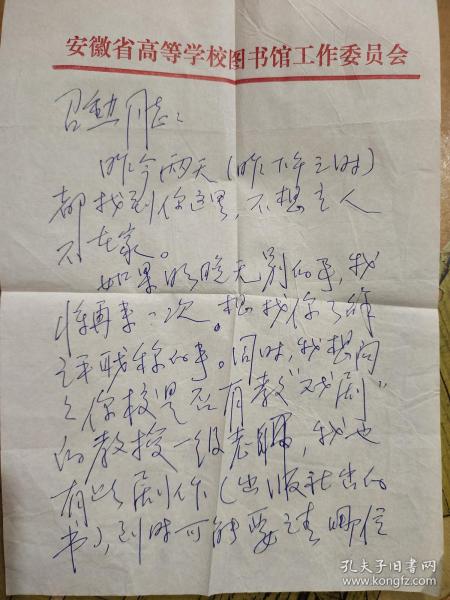 安徽省高等学校图书馆工作委员会
同志：
昨今两天（昨下午三时）
都找到你这里，不想主人
不在家。
如果明晚无别的事，我
将再来一次。想找你了解
评职称的事。同时，我想问
你校是否有教“戏剧”
的教授一级老师，我也
有些剧作（出版社出的
书），到时可能要请哪位
孔夫子旧书网
www.kongfz.com